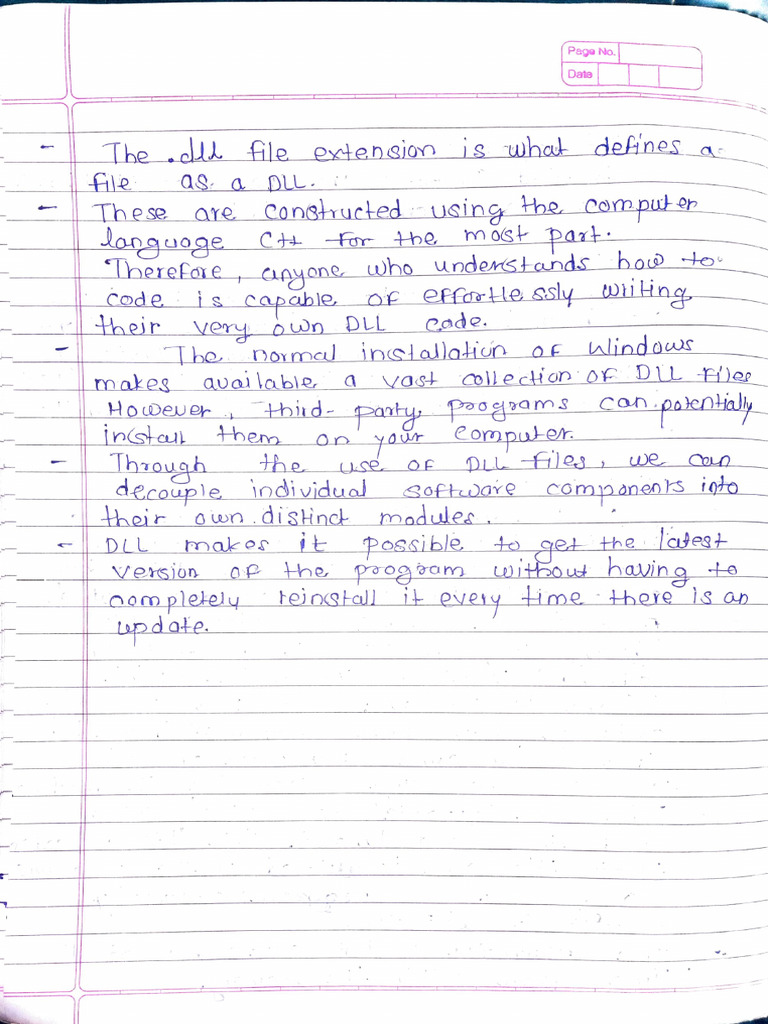 Page No.
Date
- The .dll file extension is what defines a
file as a DLL.
- These are constructed using the computer
language C++ for the most part.
Therefore, anyone who understands how to
code is capable of effortlessly writing
their very own DLL code.
- The normal installation of Windows
makes available a vast collection of DLL files
However, third-party programs can potentially
install them on your computer.
- Through the use of DLL files, we can
decouple individual software components into
their own distinct modules.
- DLL makes it possible to get the latest
version of the program without having to
completely reinstall it every time there is an
update.